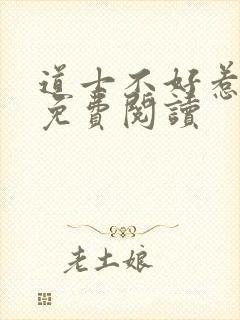 道士不好惹
免費閱讀
老土娘